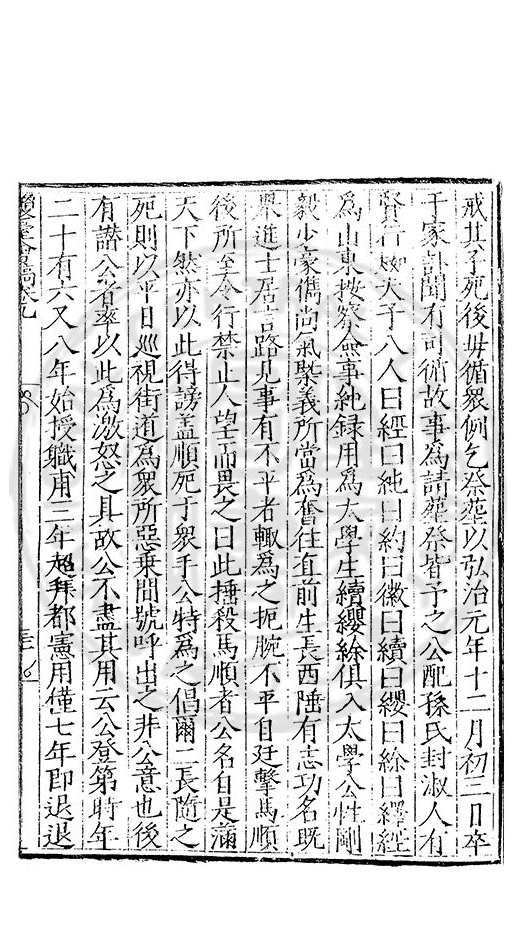 戒其子死後毋循衆例乞祭塋以弘治元年十二月初三日卒
于家訃聞有司循故事爲請塟祭皆予之公配孫氏封淑人有
賢行丈夫子八人曰經曰純曰約曰徽曰續曰纓曰綸曰繹經
爲山東按察僉事純録用爲太學生續纓綸俱入太學公性剛
毅少豪儁尚氣槩義所當爲奮往直前生長西陲有志功名既
舉進士居言路見事有不平者輒爲之扼腕不平自廷擊馬順
後所至令行禁止人望而畏之曰此捶殺馬順者公名自是滿
天下然亦以此得謗盖順死于衆手公特爲之倡爾二長隨之
死則以平日巡視街道爲衆所惡乗間號呼出之非公意也後
有譖公者率以此爲激怒之具故公不盡其用云公登第時年
二十有六又八年始授職甫三年超拜都憲用僅七年即退退
雙溪 稿卷九
三